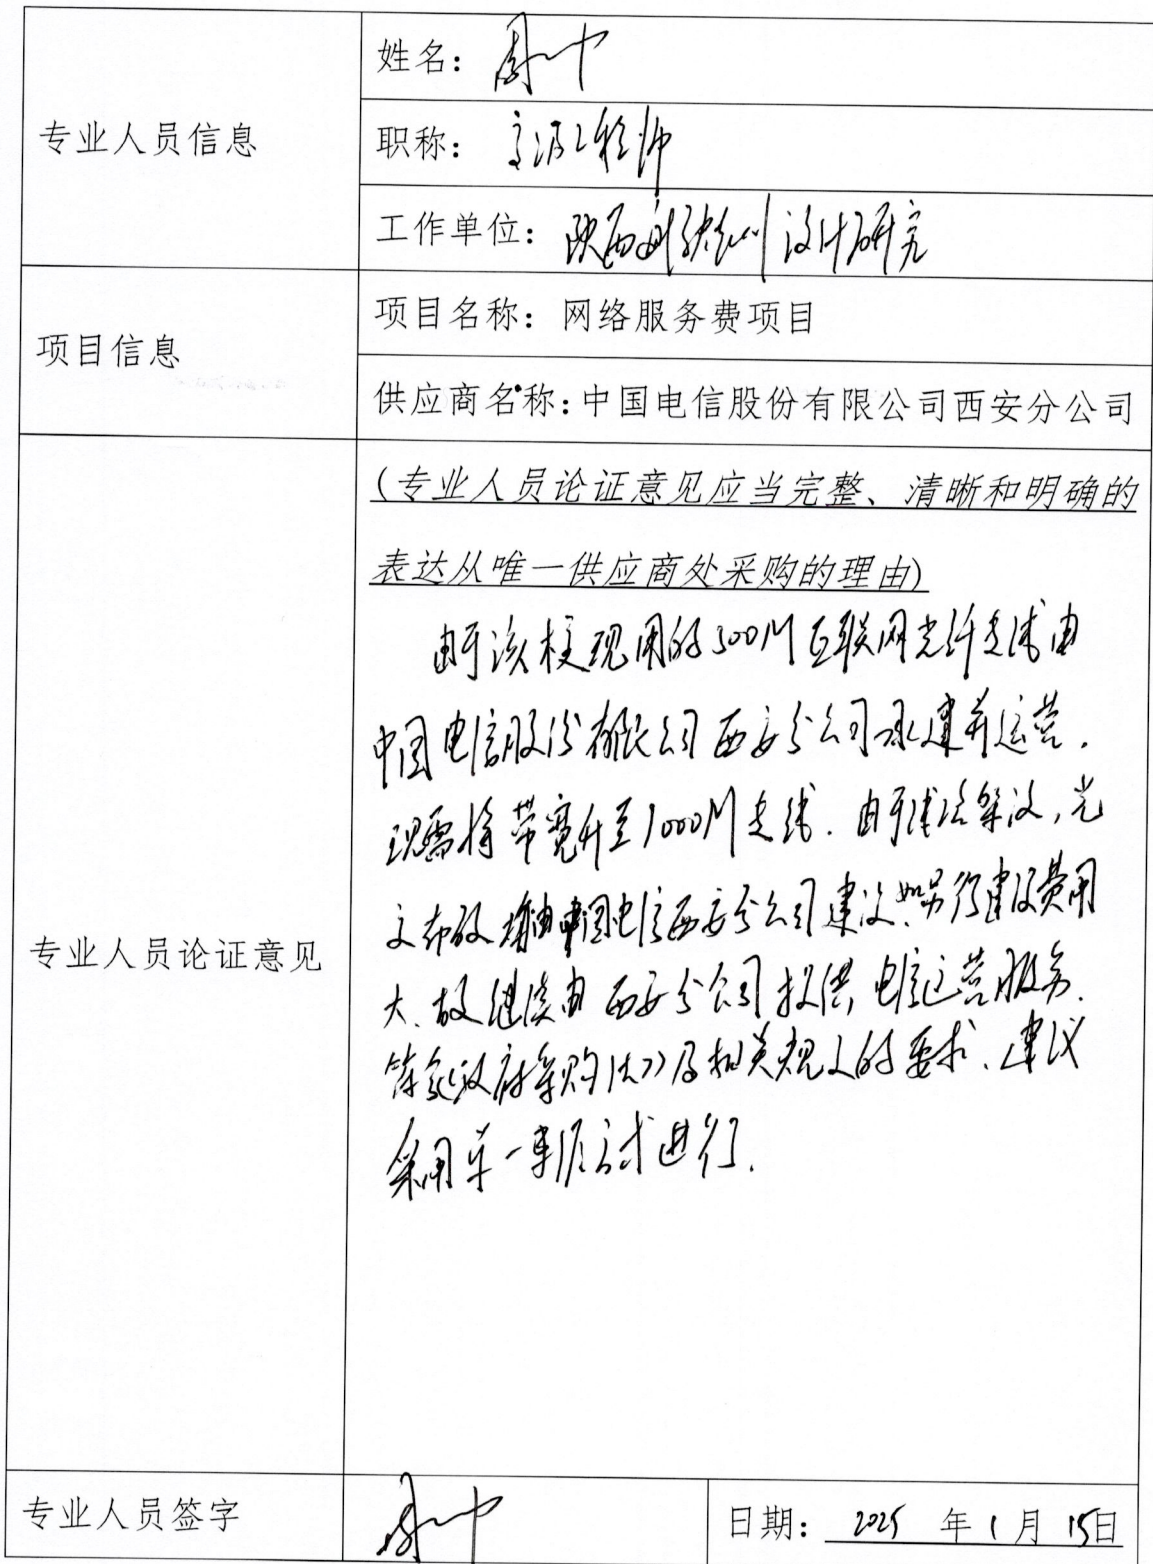 专业人员信息
姓名：周一中
职称：高级工程师
工作单位：陕西 设计研究
项目信息
项目名称：网络服务费项目
供应商名称：中国电信股份有限公司西安分公司
专业人员论证意见
(专业人员论证意见应当完整、清晰和明确的
表达从唯一供应商处采购的理由)
由于该校现用的500M互联网光纤专线由
中国电信股份有限公司西安分公司承建并运营.
现需将带宽升至1000M专线.由于线路架设,光
布放 由中国电信西安分公司建设.如另行建设费用
大.故继续由西安分公司提供电信运营服务.
符合《政府采购法》及相关规定的要求.建议
采用单一来源方式进行.
专业人员签字
周一中
日期：2025 年 1 月 15日